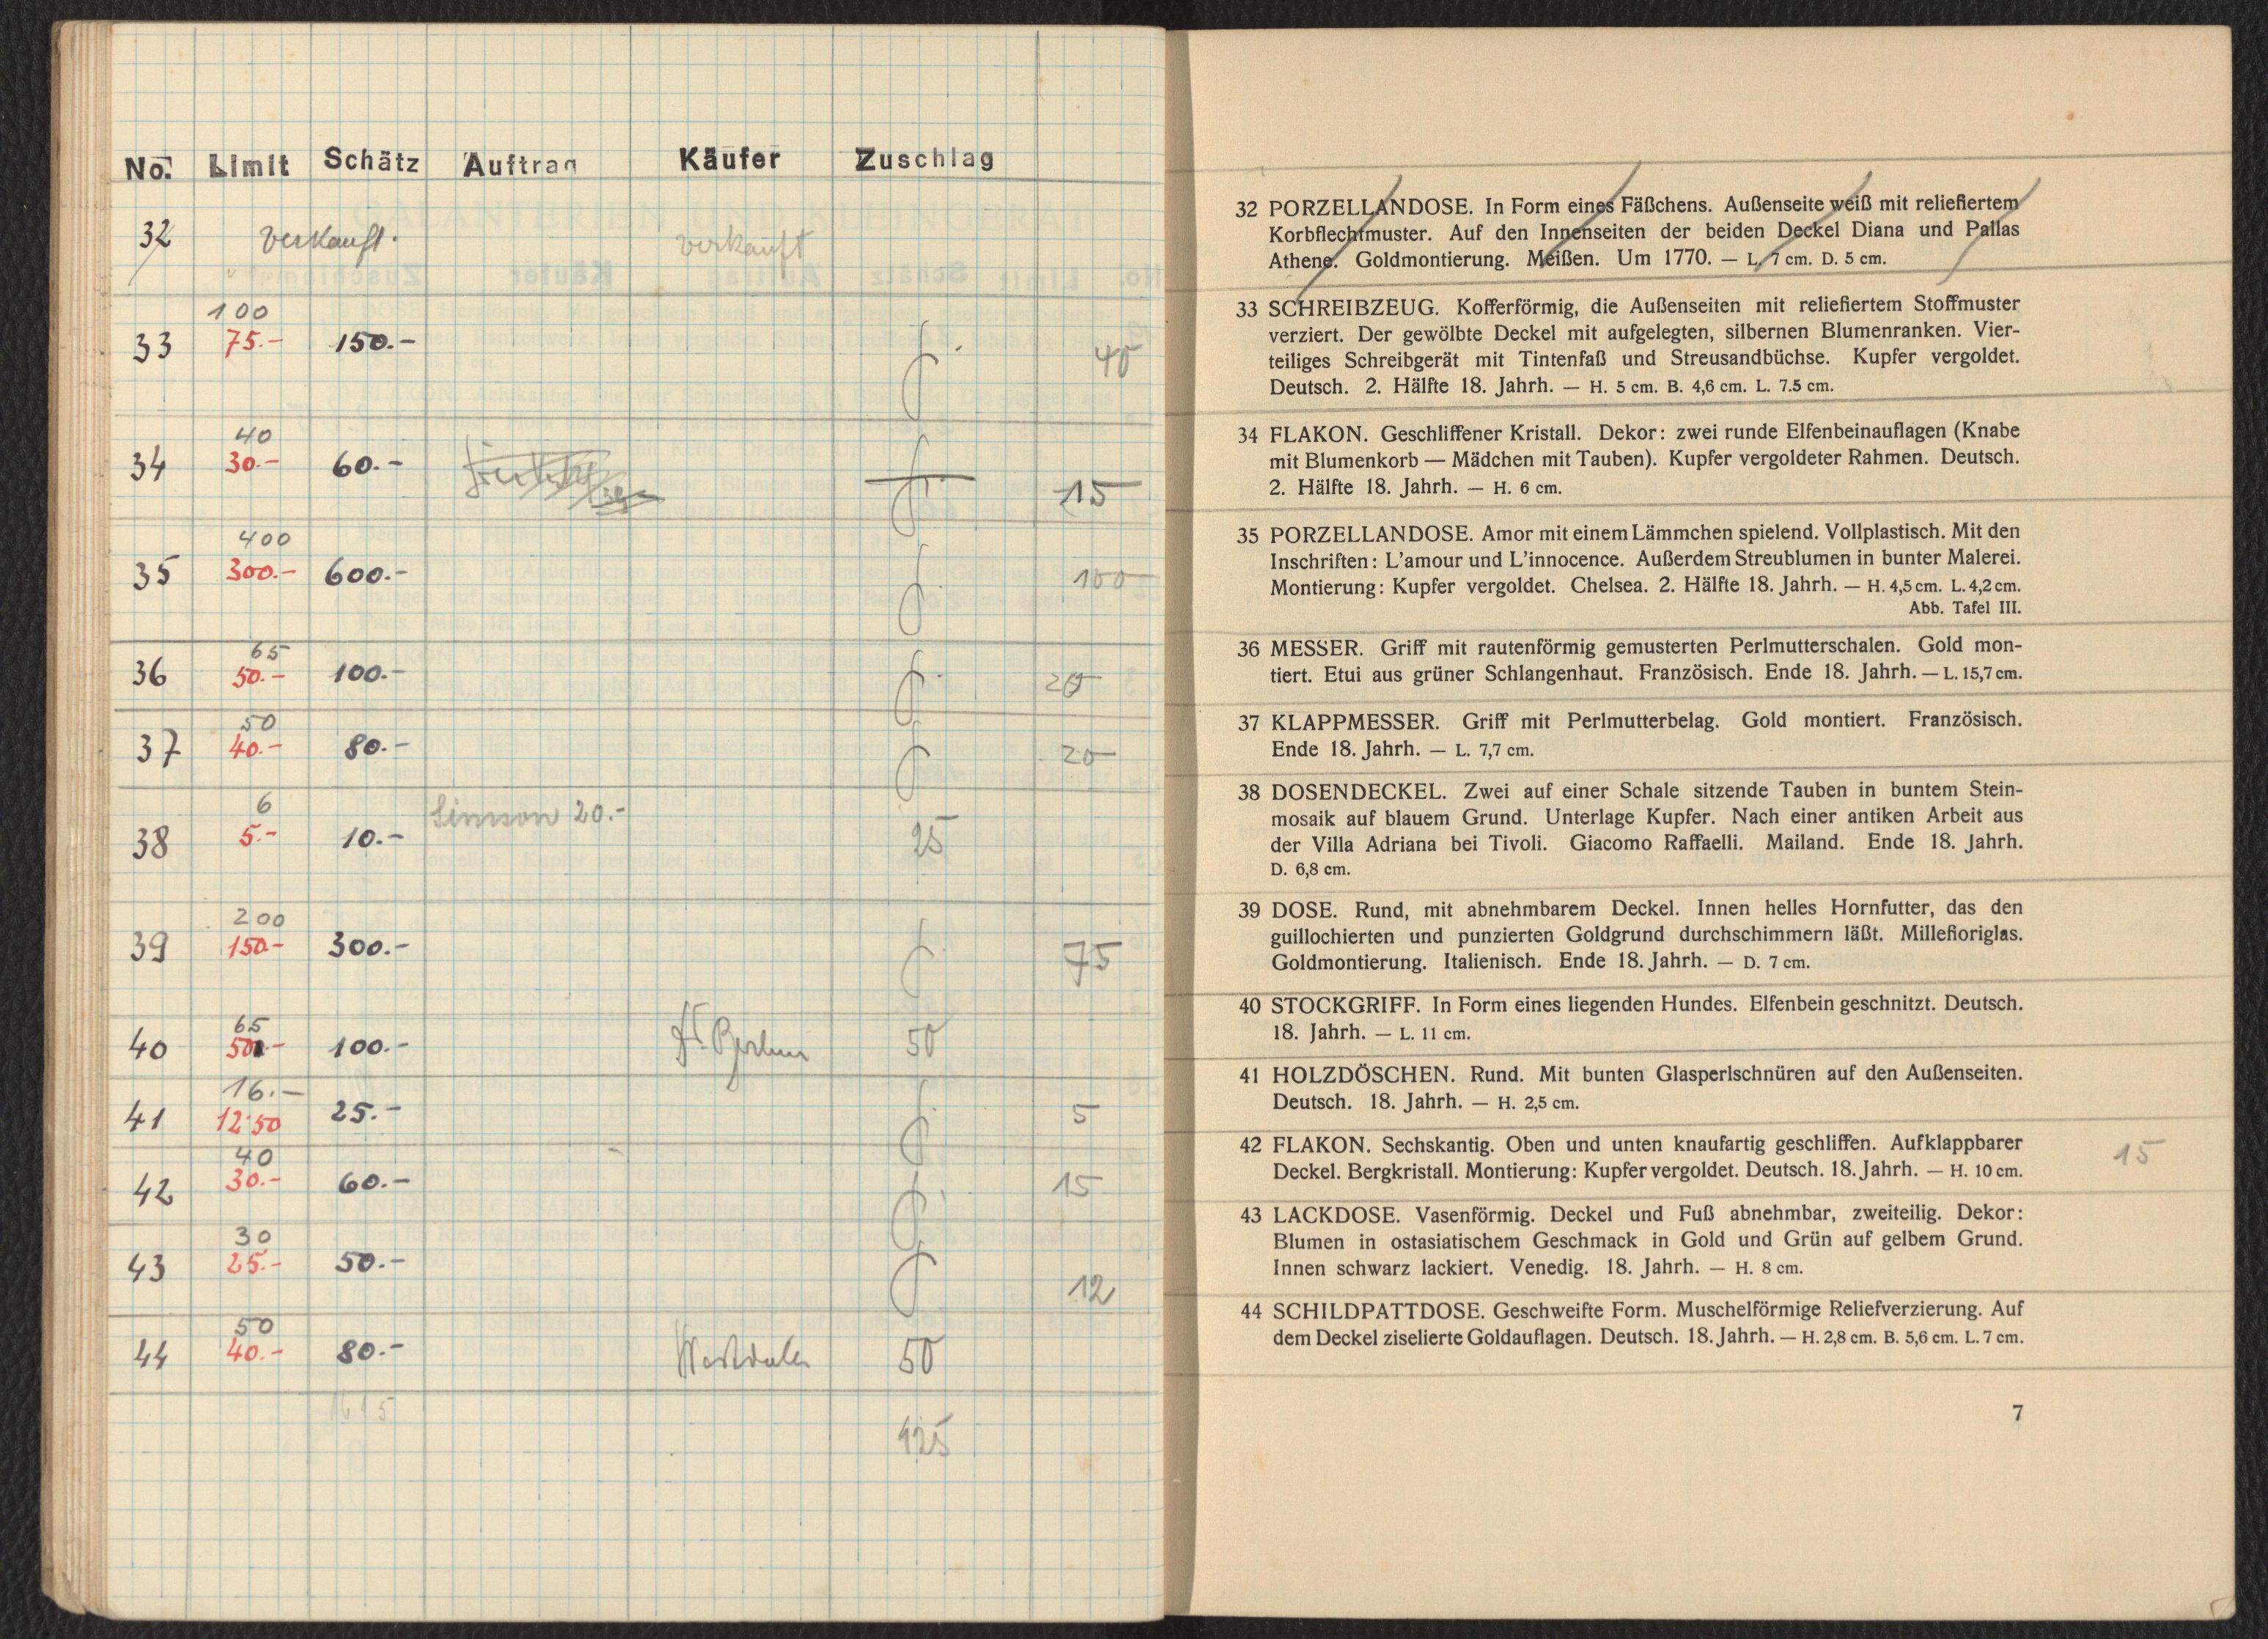 No. Limit Schätz Auftrag Käufer Zuschlag
32 verkauft. verkauft
100
33 75.- 150.- 40
40
34 30.- 60.- 15
400
35 300.- 600.- 100
65
36 50.- 100.- 20
50
37 40.- 80.- 20
6 Simson 20.-
38 5.- 10.- 25
200
39 150.- 300.- 75
65
40 50.- 100.- 50
16.-
41 12.50 25.- 5
40
42 30.- 60.- 15
30
43 25.- 50.- 12
50
44 40.- 80.- 50
1615
125
32 PORZELLANDOSE. In Form eines Fäßchens. Außenseite weiß mit reliefiertem
Korbflechtmuster. Auf den Innenseiten der beiden Deckel Diana und Pallas
Athene. Goldmontierung. Meißen. Um 1770. — L. 7 cm. D. 5 cm.
33 SCHREIBZEUG. Kofferförmig, die Außenseiten mit reliefiertem Stoffmuster
verziert. Der gewölbte Deckel mit aufgelegten, silbernen Blumenranken. Vier-
teiliges Schreibgerät mit Tintenfaß und Streusandbüchse. Kupfer vergoldet.
Deutsch. 2. Hälfte 18. Jahrh. — H. 5 cm. B. 4,6 cm. L. 7.5 cm.
34 FLAKON. Geschliffener Kristall. Dekor: zwei runde Elfenbeinauflagen (Knabe
mit Blumenkorb — Mädchen mit Tauben). Kupfer vergoldeter Rahmen. Deutsch.
2. Hälfte 18. Jahrh. — H. 6 cm.
35 PORZELLANDOSE. Amor mit einem Lämmchen spielend. Vollplastisch. Mit den
Inschriften: L'amour und L'innocence. Außerdem Streublumen in bunter Malerei.
Montierung: Kupfer vergoldet. Chelsea. 2. Hälfte 18. Jahrh. — H. 4,5 cm. L. 4,2 cm.
Abb. Tafel III.
36 MESSER. Griff mit rautenförmig gemusterten Perlmutterschalen. Gold mon-
tiert. Etui aus grüner Schlangenhaut. Französisch. Ende 18. Jahrh. — L. 15,7 cm.
37 KLAPPMESSER. Griff mit Perlmutterbelag. Gold montiert. Französisch.
Ende 18. Jahrh. — L. 7,7 cm.
38 DOSENDECKEL. Zwei auf einer Schale sitzende Tauben in buntem Stein-
mosaik auf blauem Grund. Unterlage Kupfer. Nach einer antiken Arbeit aus
der Villa Adriana bei Tivoli. Giacomo Raffaelli. Mailand. Ende 18. Jahrh.
D. 6,8 cm.
39 DOSE. Rund, mit abnehmbarem Deckel. Innen helles Hornfutter, das den
guillochierten und punzierten Goldgrund durchschimmern läßt. Millefioriglas.
Goldmontierung. Italienisch. Ende 18. Jahrh. — D. 7 cm.
40 STOCKGRIFF. In Form eines liegenden Hundes. Elfenbein geschnitzt. Deutsch.
18. Jahrh. — L. 11 cm.
41 HOLZDÖSCHEN. Rund. Mit bunten Glasperlschnüren auf den Außenseiten.
Deutsch. 18. Jahrh. — H. 2,5 cm.
42 FLAKON. Sechskantig. Oben und unten knaufartig geschliffen. Aufklappbarer 15
Deckel. Bergkristall. Montierung: Kupfer vergoldet. Deutsch. 18. Jahrh. — H. 10 cm.
43 LACKDOSE. Vasenförmig. Deckel und Fuß abnehmbar, zweiteilig. Dekor:
Blumen in ostasiatischem Geschmack in Gold und Grün auf gelbem Grund.
Innen schwarz lackiert. Venedig. 18. Jahrh. — H. 8 cm.
44 SCHILDPATTDOSE. Geschweifte Form. Muschelförmige Reliefverzierung. Auf
dem Deckel ziselierte Goldauflagen. Deutsch. 18. Jahrh. — H. 2,8 cm. B. 5,6 cm. L. 7 cm.
7